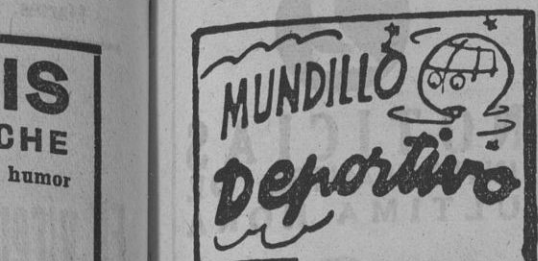 IS
CHE
humor
MUNDILLO
Deportivo